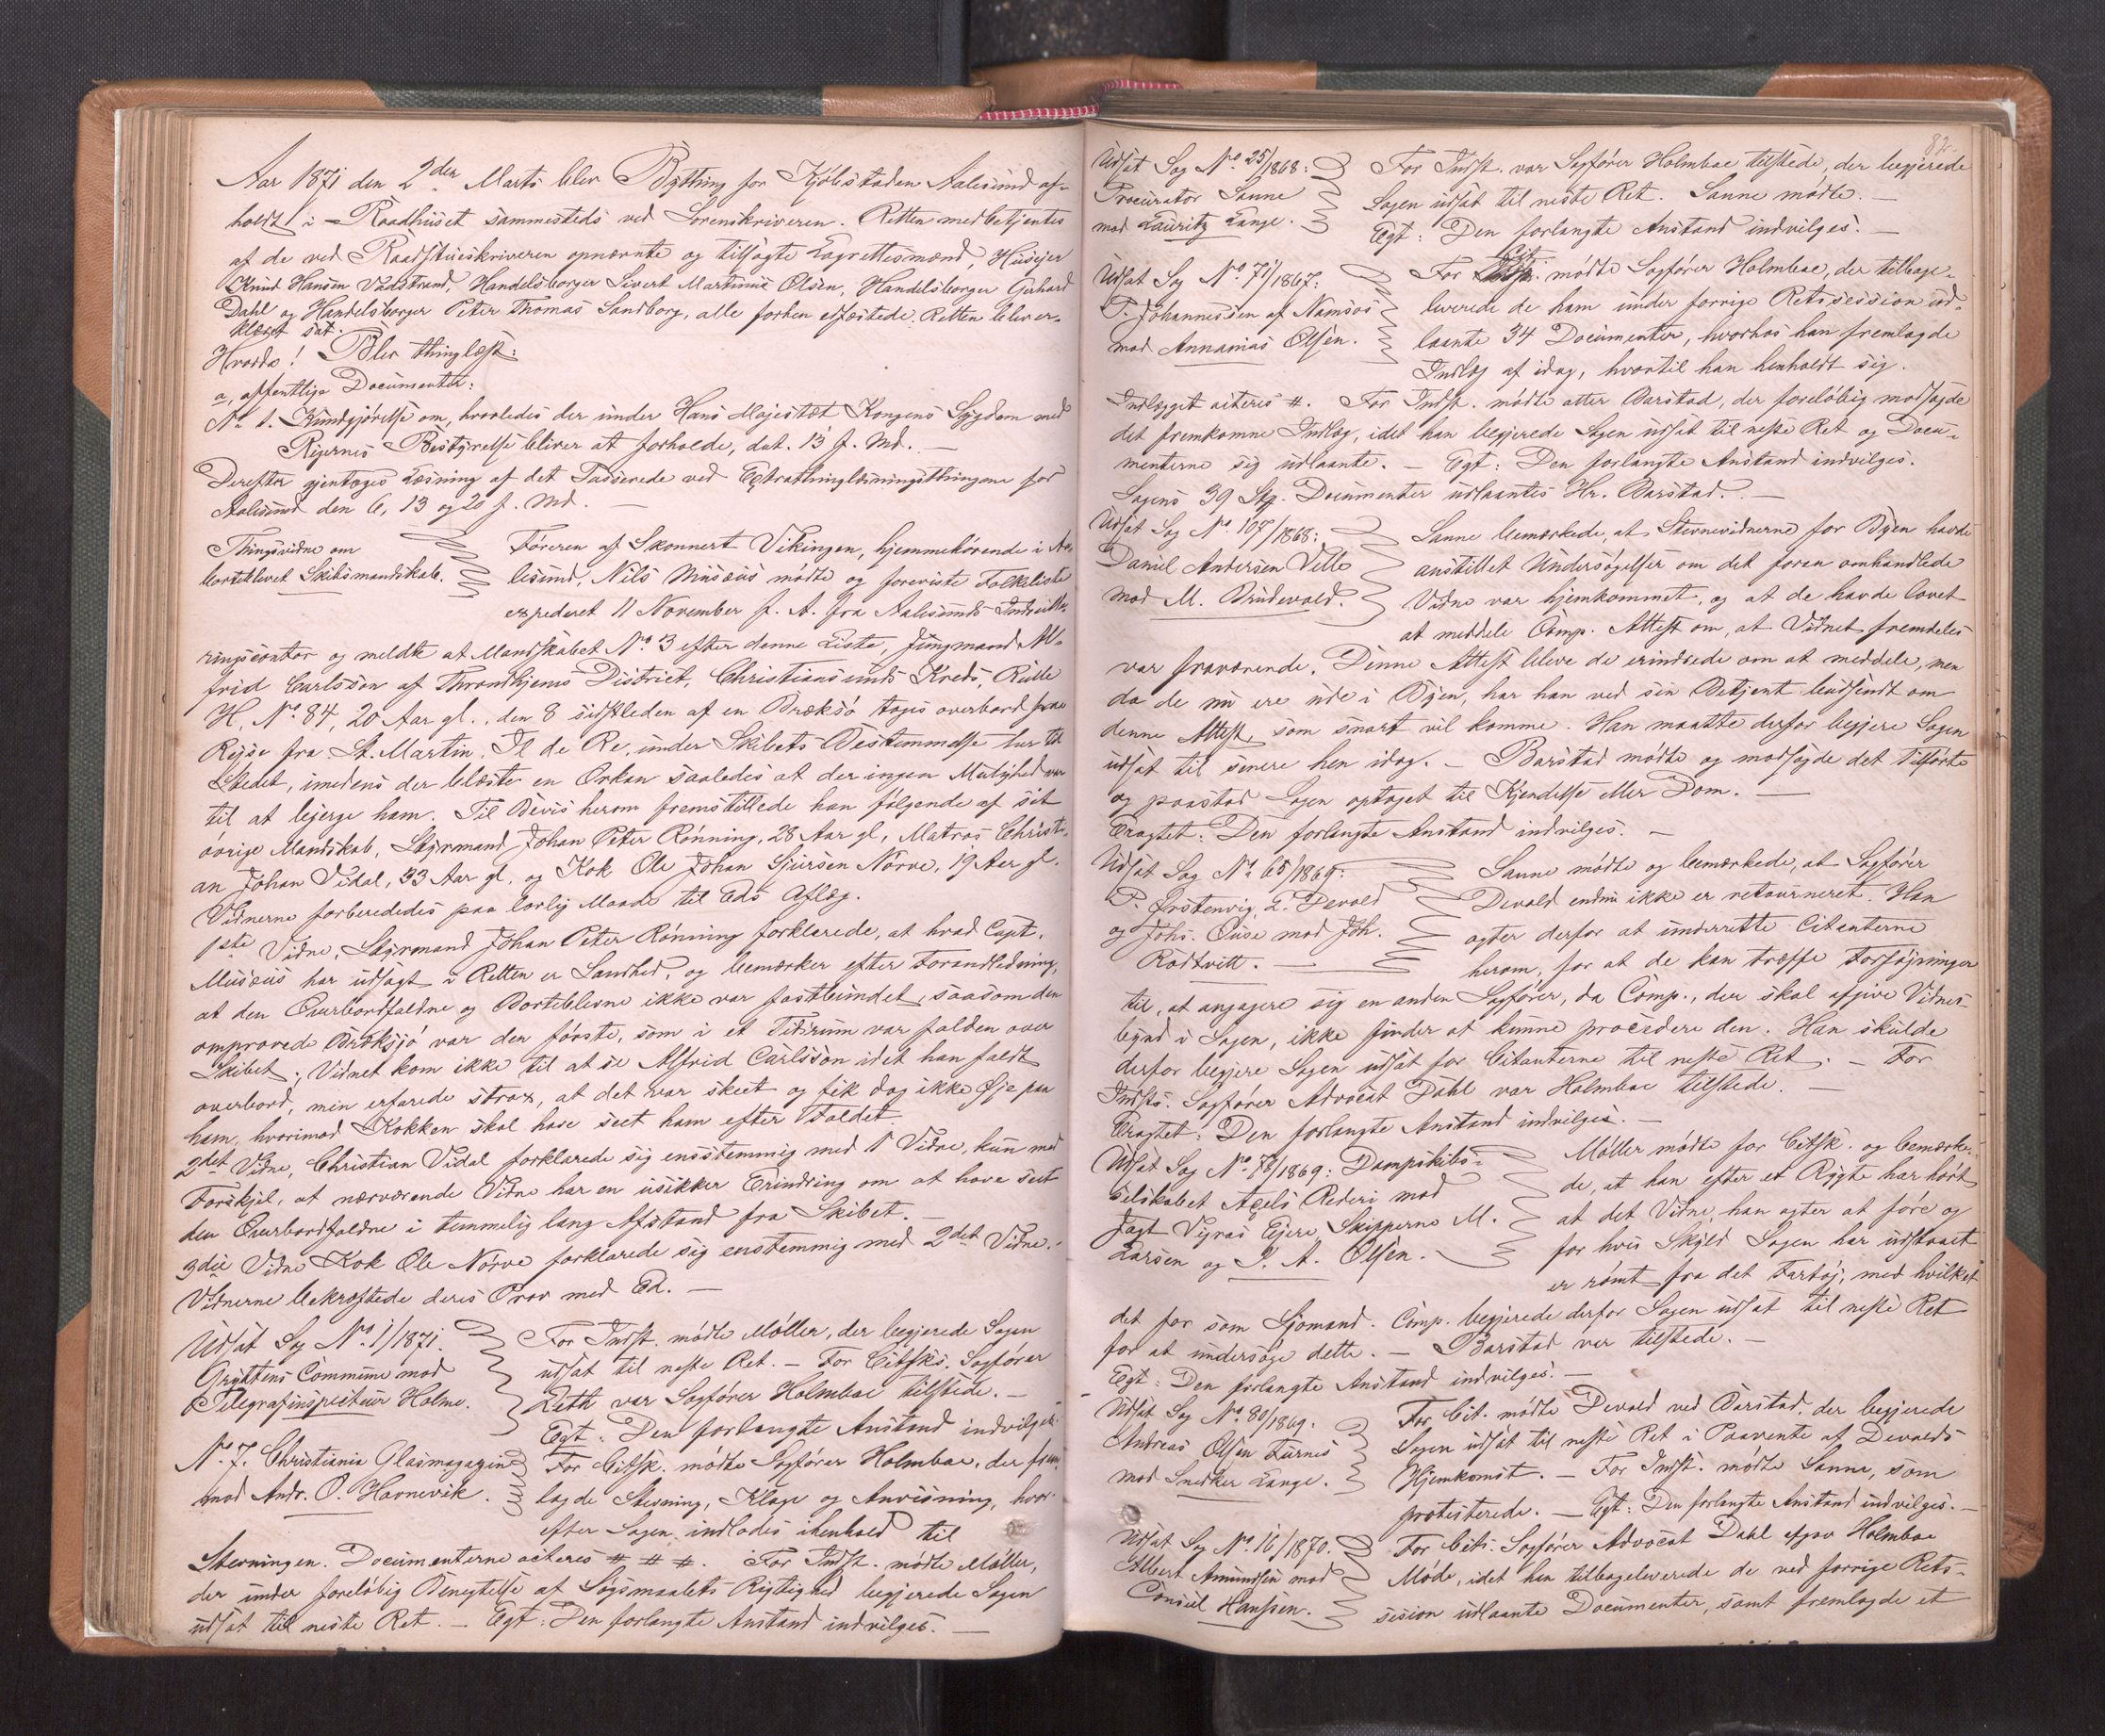 Aar 1871 den 2den Marts blev Bything for Kjøbstaden Aalesund af-
holdt i Raadhuset sammesteds ved Sorenskriveren. Retten medbetjentes
af de ved Raadstueskriveren opnævnte og tilsagte Lagrettesmænd, Huusejer
Knud Hansen Handelsborger Sivert Martinus Olsen, Handelsborger Gerhard
Dahl og Handelsborger Peter Thomas Sandborg, alle forhen edfæstede. Retten blev er-
klæret sat.
Hvorda! Blev thinglæst:
a, offentlige Documenter:
No 1. Kundgjørelse om, hvorledes der under Hans Majestæt Kongens Sygdom med
Rigernes Bestyrelse bliver at forholde, dat. 13 f. Md. —
Derefter gjentoges Læsning af det Passerede ved Extrathinglæsningsthingene for
Aalesund den 6, 13 og 20 f. Md. —
Thingsvidne om
bortblevet Skibsmandskab.
Føreren af Skonnert Vikingen, hjemmehørende i Aa-
lesund, Nils Musæus mødte og foreviste Folkeliste
expederet 11 November f. A. fra Aalesunds Indrulle-
ringscontor og meldte at Mandskabet No 3 efter denne Liste, Jungmand Al-
frid Carlsson af Throndhjems District, Christiansunds Kreds, Rulle
H, No 84, 20 Aar gl., den 8 sidstleden af en Bræksø toges overbord paa
Rejse fra St. Martin, Il de Re, under Skibets Bestemmelse her til
Stedet, imedens der blæste en Orkan saaledes at der ingen Mulighed var
til at bjerge ham. Til Bevis herom fremstillede han følgende af sit
øvrige Mandskab, Styrmand Johan Peter Rønning, 28 Aar gl, Matros Christi-
an Johan Vidal, 33 Aar gl, og Kok Ole Johan Sjursen Nørve, 19 Aar gl.
Vidnerne forberededes paa lovlig Maade til Eds Aflæg.
1ste Vidne, Styrmand Johan Peter Rønning forklarede, at hvad Capt.
Musæus har udsagt i Retten er Sandhed, og bemærker efter Foranledning,
at den Overbordfaldne og Bortblevne ikke var fastbundet, saasom den
omprovede Bræksjø var den første, som i et Tidsrum var falden over
Skibet; Vidnet kom ikke til at se Alfrid Carlsson idet han faldt
overbord, men erfarede strax, at det var skeet og fik dog ikke Øje paa
ham, hvorimod Kokken skal have seet ham efter Faldet.
2det Vidne, Christian Vidal forklarede sig ensstemmig med 1 Vidne, kun med
Forskjel, at nærværende Vidne har en usikker Erindring om at have seet
den Overbordfaldne i temmelig lang Afstand fra Skibet. —
3die Vidne Kok Ole Nørve forklarede sig enstemmig med 2det Vidne.
Vidnerne bekræftede deres Prov med Ed. —
Udsat Sag No 1/1871.
Gryttens Commune mod
Telegrafinspecteur Holme.
For Indst. mødte Møller, der begjerede Sagen
udsat til neste Ret. — For Citsks. Sagfører
Leth var Sagfører Holmboe tilstede. —
Egt: Den forlangte Anstand indvilges.
No 7. Christiania Glasmagazine
mod Andr. O. Havnevik.
For Citsk. mødte Sagfører Holmboe, der frem-
lagde Stevning, Klage og Anvisning, hvor-
efter Sagen indlodes i henhold til
Stevningen. Documenterne acteres # # #. For Indst. mødte Møller,
der under foreløbig Benegtelse af Søgsmaalets Rigtighed begjerede Sagen
udsat til neste Ret. — Egt: Den forlangte Anstand indvilges. —
82.
Udsat Sag No 25/1868:
Procurator Sanne
mod Lauritz Lange.
For Indst. var Sagfører Holmboe tilstede, der begjerede
Sagen udsat til neste Ret. Sanne mødte. —
Egt: Den forlangte Anstand indvilges. —
Udsat Sag No 71/1867:
T. Johannessen af Namsos
mod Annanias Olsen.
For Cit. mødte Sagfører Holmboe, der tilbage-
leverede de ham under forrige Retssession ud-
laante 34 Documenter, hvorhos han fremlagde
Indlæg af idag, hvortil han henholdt sig.
Indlægget acteres #. For Indst. mødte atter Barstad, der foreløbig modsagde
det fremkomne Indlæg, idet han begjerede Sagen udsat til neste Ret og Docu-
menterne sig udlaante. — Egt: Den forlangte Anstand indvilges.
Sagens 39 Stk. Documenter udlaantes Hr. Barstad. —
Udsat Sag No 107/1868:
Daniel Andersen Velle
mod M. Brudevold.
Sanne bemærkede, at Stevnevidnerne for Byen havde
anstillet Undersøgelser om det foran omhandlede
Vidne var hjemkommet, og at de havde lovet
at meddele Comp. Attest om, at Vidnet fremdeles
var fraværende. Denne Attest bleve de erindrede om at meddele, men
da de nu ere ude i Byen, har han ved sin Betjent budsendt om
denne Attest, som snart vil komme. Han maatte derfor begjere Sagen
udsat til senere hen idag. — Barstad mødte og modsagde det Tilførte
og paastod Sagen optaget til Kjendelse eller Dom. —
Eragtet: Den forlangte Anstand indvilges. —
Udsat Sag No 65/1869:
P. Ørstenvig, L. Devold
og Johs. Ouse mod Joh.
Rødtvitt. —
Sanne mødte og bemærkede, at Sagfører
Devold endnu ikke er retourneret. Han
agter derfor at underrette Citanterne
herom, for at de kan træffe Forføjninger
til, at engagere sig en anden Sagfører, da Comp., der skal afgive Vidnes-
byrd i Sagen, ikke finder at kunne procedere den. Han skulde
derfor begjere Sagen udsat for Citanterne til neste Ret. — For
Indsts. Sagfører Advocat Dahl var Holmboe tilstede. —
Eragtet: Den forlangte Anstand indvilges. —
Udsat Sag No 78/1869: Dampskibs-
selskabet Axels Rederi mod
Jagt Vigras Ejere, Skipperne M.
Larsen og I. A. Olsen.
Møller mødte for Citsk. og bemærke-
de, at han efter et Rygte har hørt
at det Vidne, han agter at føre og
for hvis Skyld Sagen har udstaaet
er rømt fra det Fartøj, med hvilket
det for som Sjømand. Comp. begjerede derfor Sagen udsat til neste Ret
for at undersøge dette. — Barstad var tilstede. —
Egt: Den forlangte Anstand indvilges. —
Udsat Sag No 80/1869.
Andreas Olsen Furnes
mod Snedker Lange.
For Cit. mødte Devold ved Barstad, der begjerede
Sagen udsat til neste Ret i Paavente af Devolds
Hjemkomst. — For Indst. mødte Sanne, som
protesterede. — Egt: Den forlangte Anstand indvilges. —
Udsat Sag No. 16/1870.
Albert Amundsen mod
Consul Hanssen.
For Cits. Sagfører Advocat Dahl afgav Holmboe
Møde, idet han tilbageleverede de ved forrige Rets-
session udlaante Documenter, samt fremlagde et